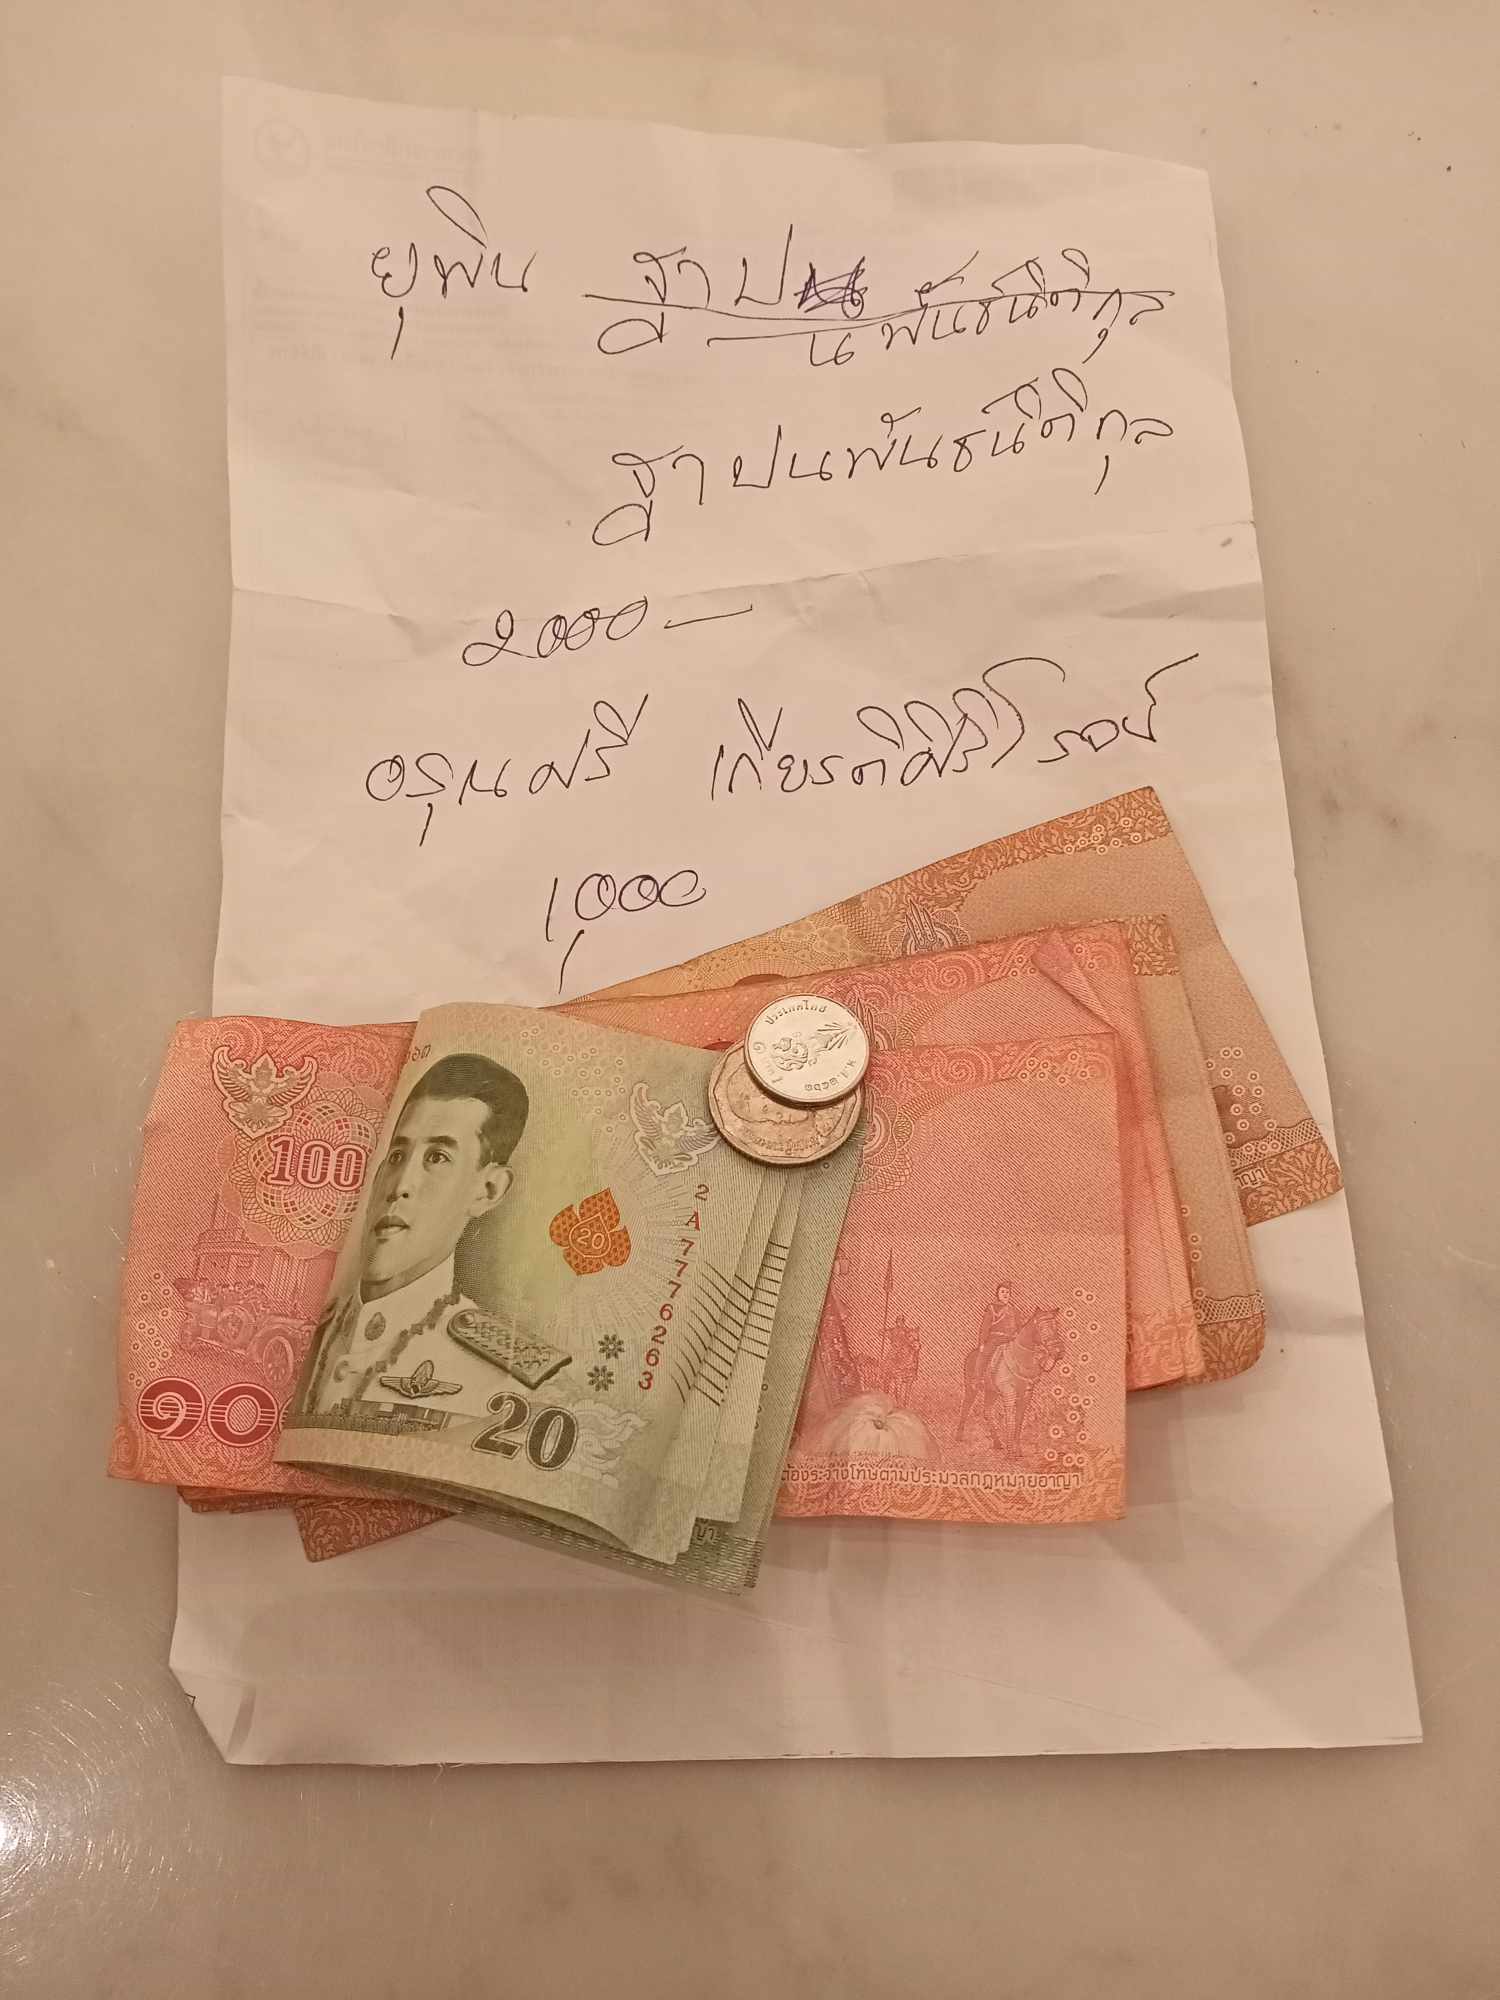 ยุพิน ฐาปนพันธนิติกุล
ฐาปนพันธนิติกุล
2000 —
อรุณศรี เกียรติศิริโรจน์
1,000
100
๑๐
20
20
2A7776263
ประเทศไทย
ต้องระวางโทษตามประมวลกฎหมายอาญา